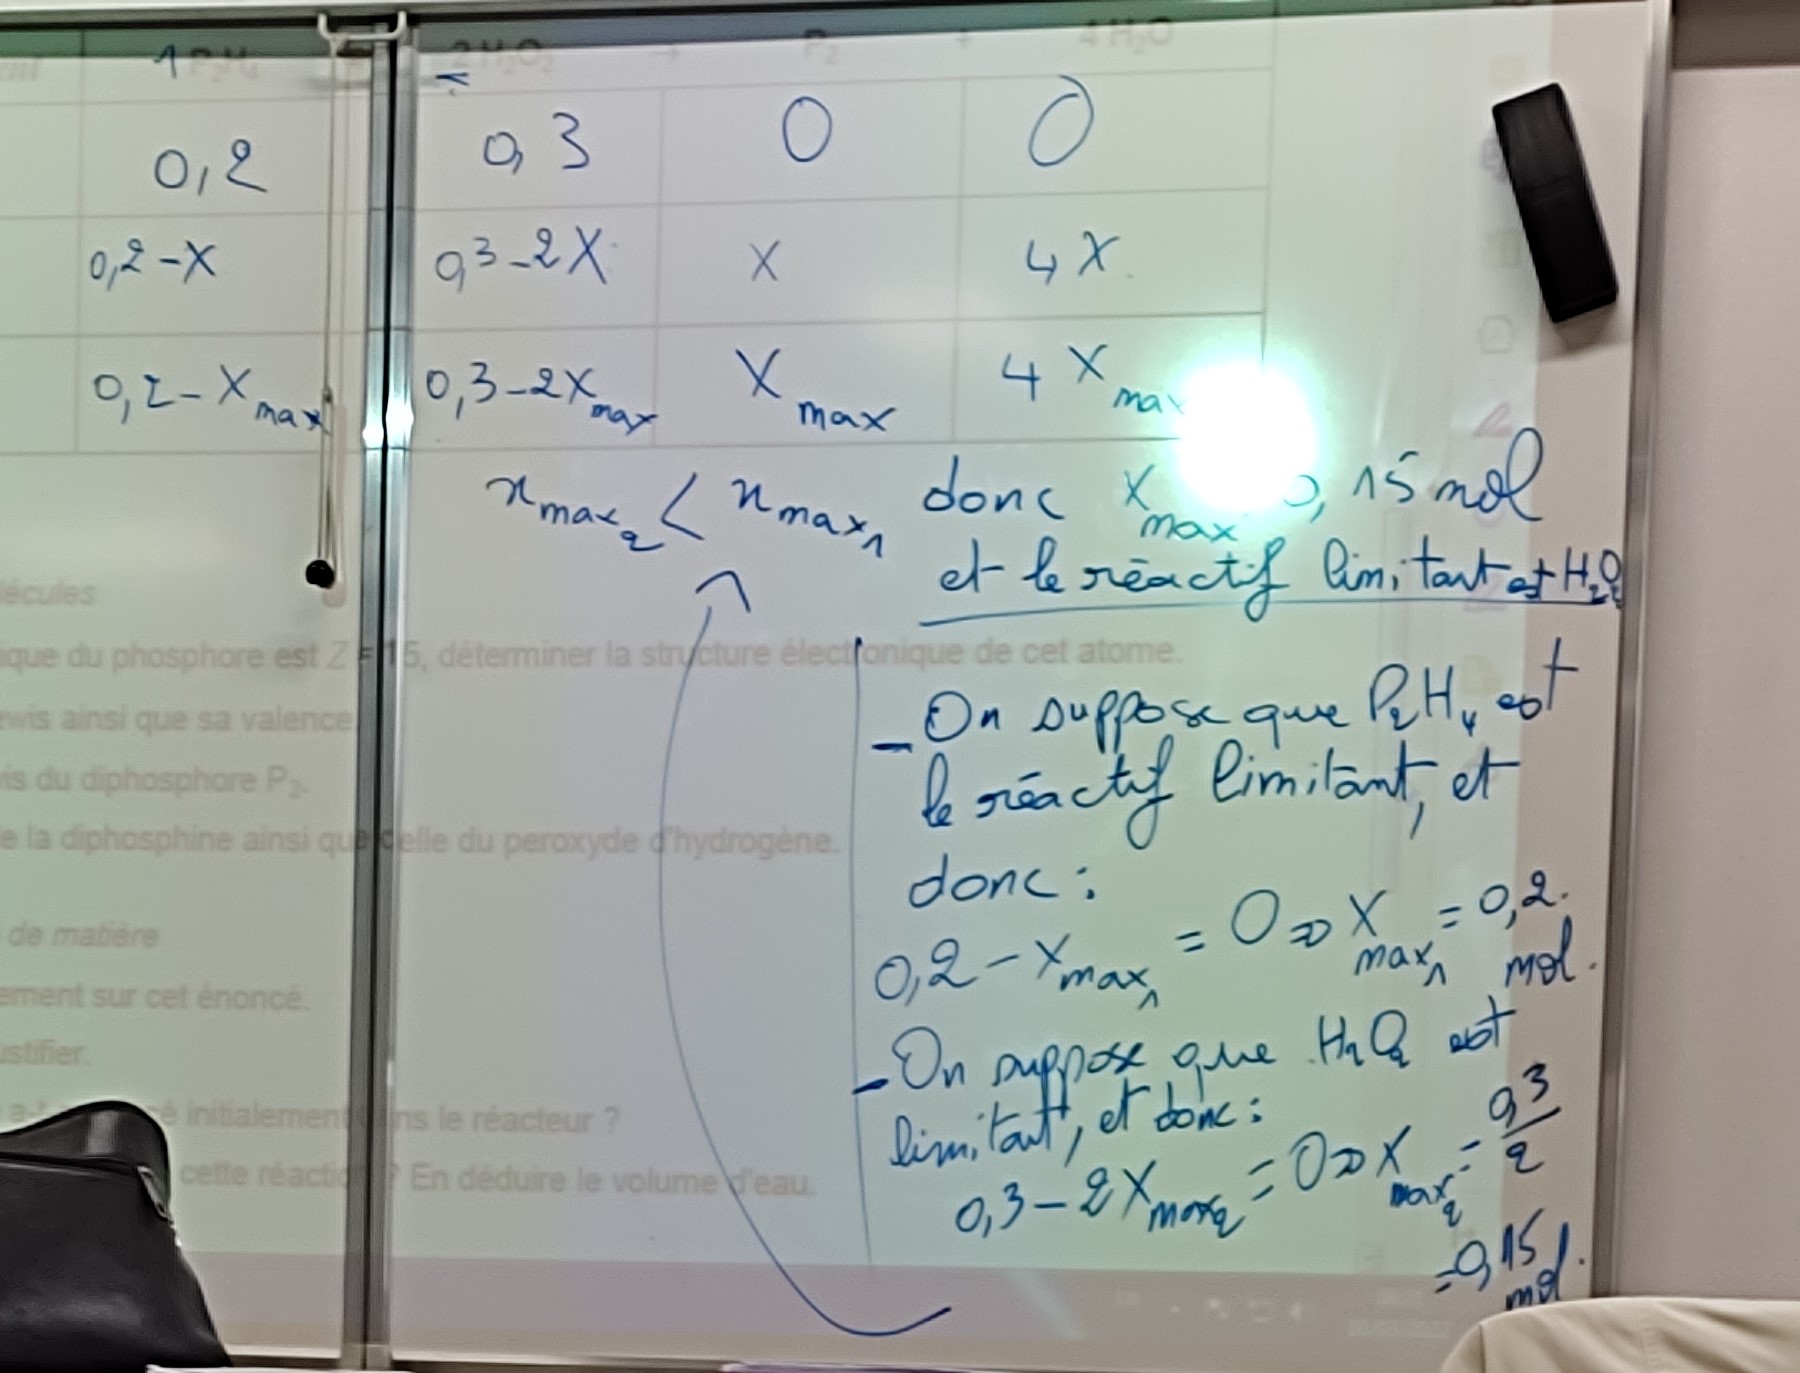 1 P₂H₄ + 2 H₂O₂ → P₂ + 4 H₂O
0,2 0,3 0 0
0,2 - X 0,3 - 2X X 4X
0,2 - Xmax 0,3 - 2Xmax Xmax 4 Xmax
xmax₂ < xmax₁ donc Xmax 0,15 mol
et le réactif limitant est H₂O₂
ique du phosphore est Z = 15, déterminer la structure électronique de cet atome.
ewis ainsi que sa valence
is du diphosphore P₂.
e la diphosphine ainsi que celle du peroxyde d'hydrogène.
de matière
ement sur cet énoncé.
ustifier.
initialement dans le réacteur ?
cette réaction ? En déduire le volume d'eau.
- On suppose que P₂H₄ est
le réactif limitant, et
donc :
0,2 - Xmax₁ = 0 ⇒ Xmax₁ = 0,2 mol.
- On suppose que H₂O₂ est
limitant, et donc :
0,3 - 2Xmax₂ = 0 ⇒ Xmax₂ = 0,3/2
= 0,15 mol.